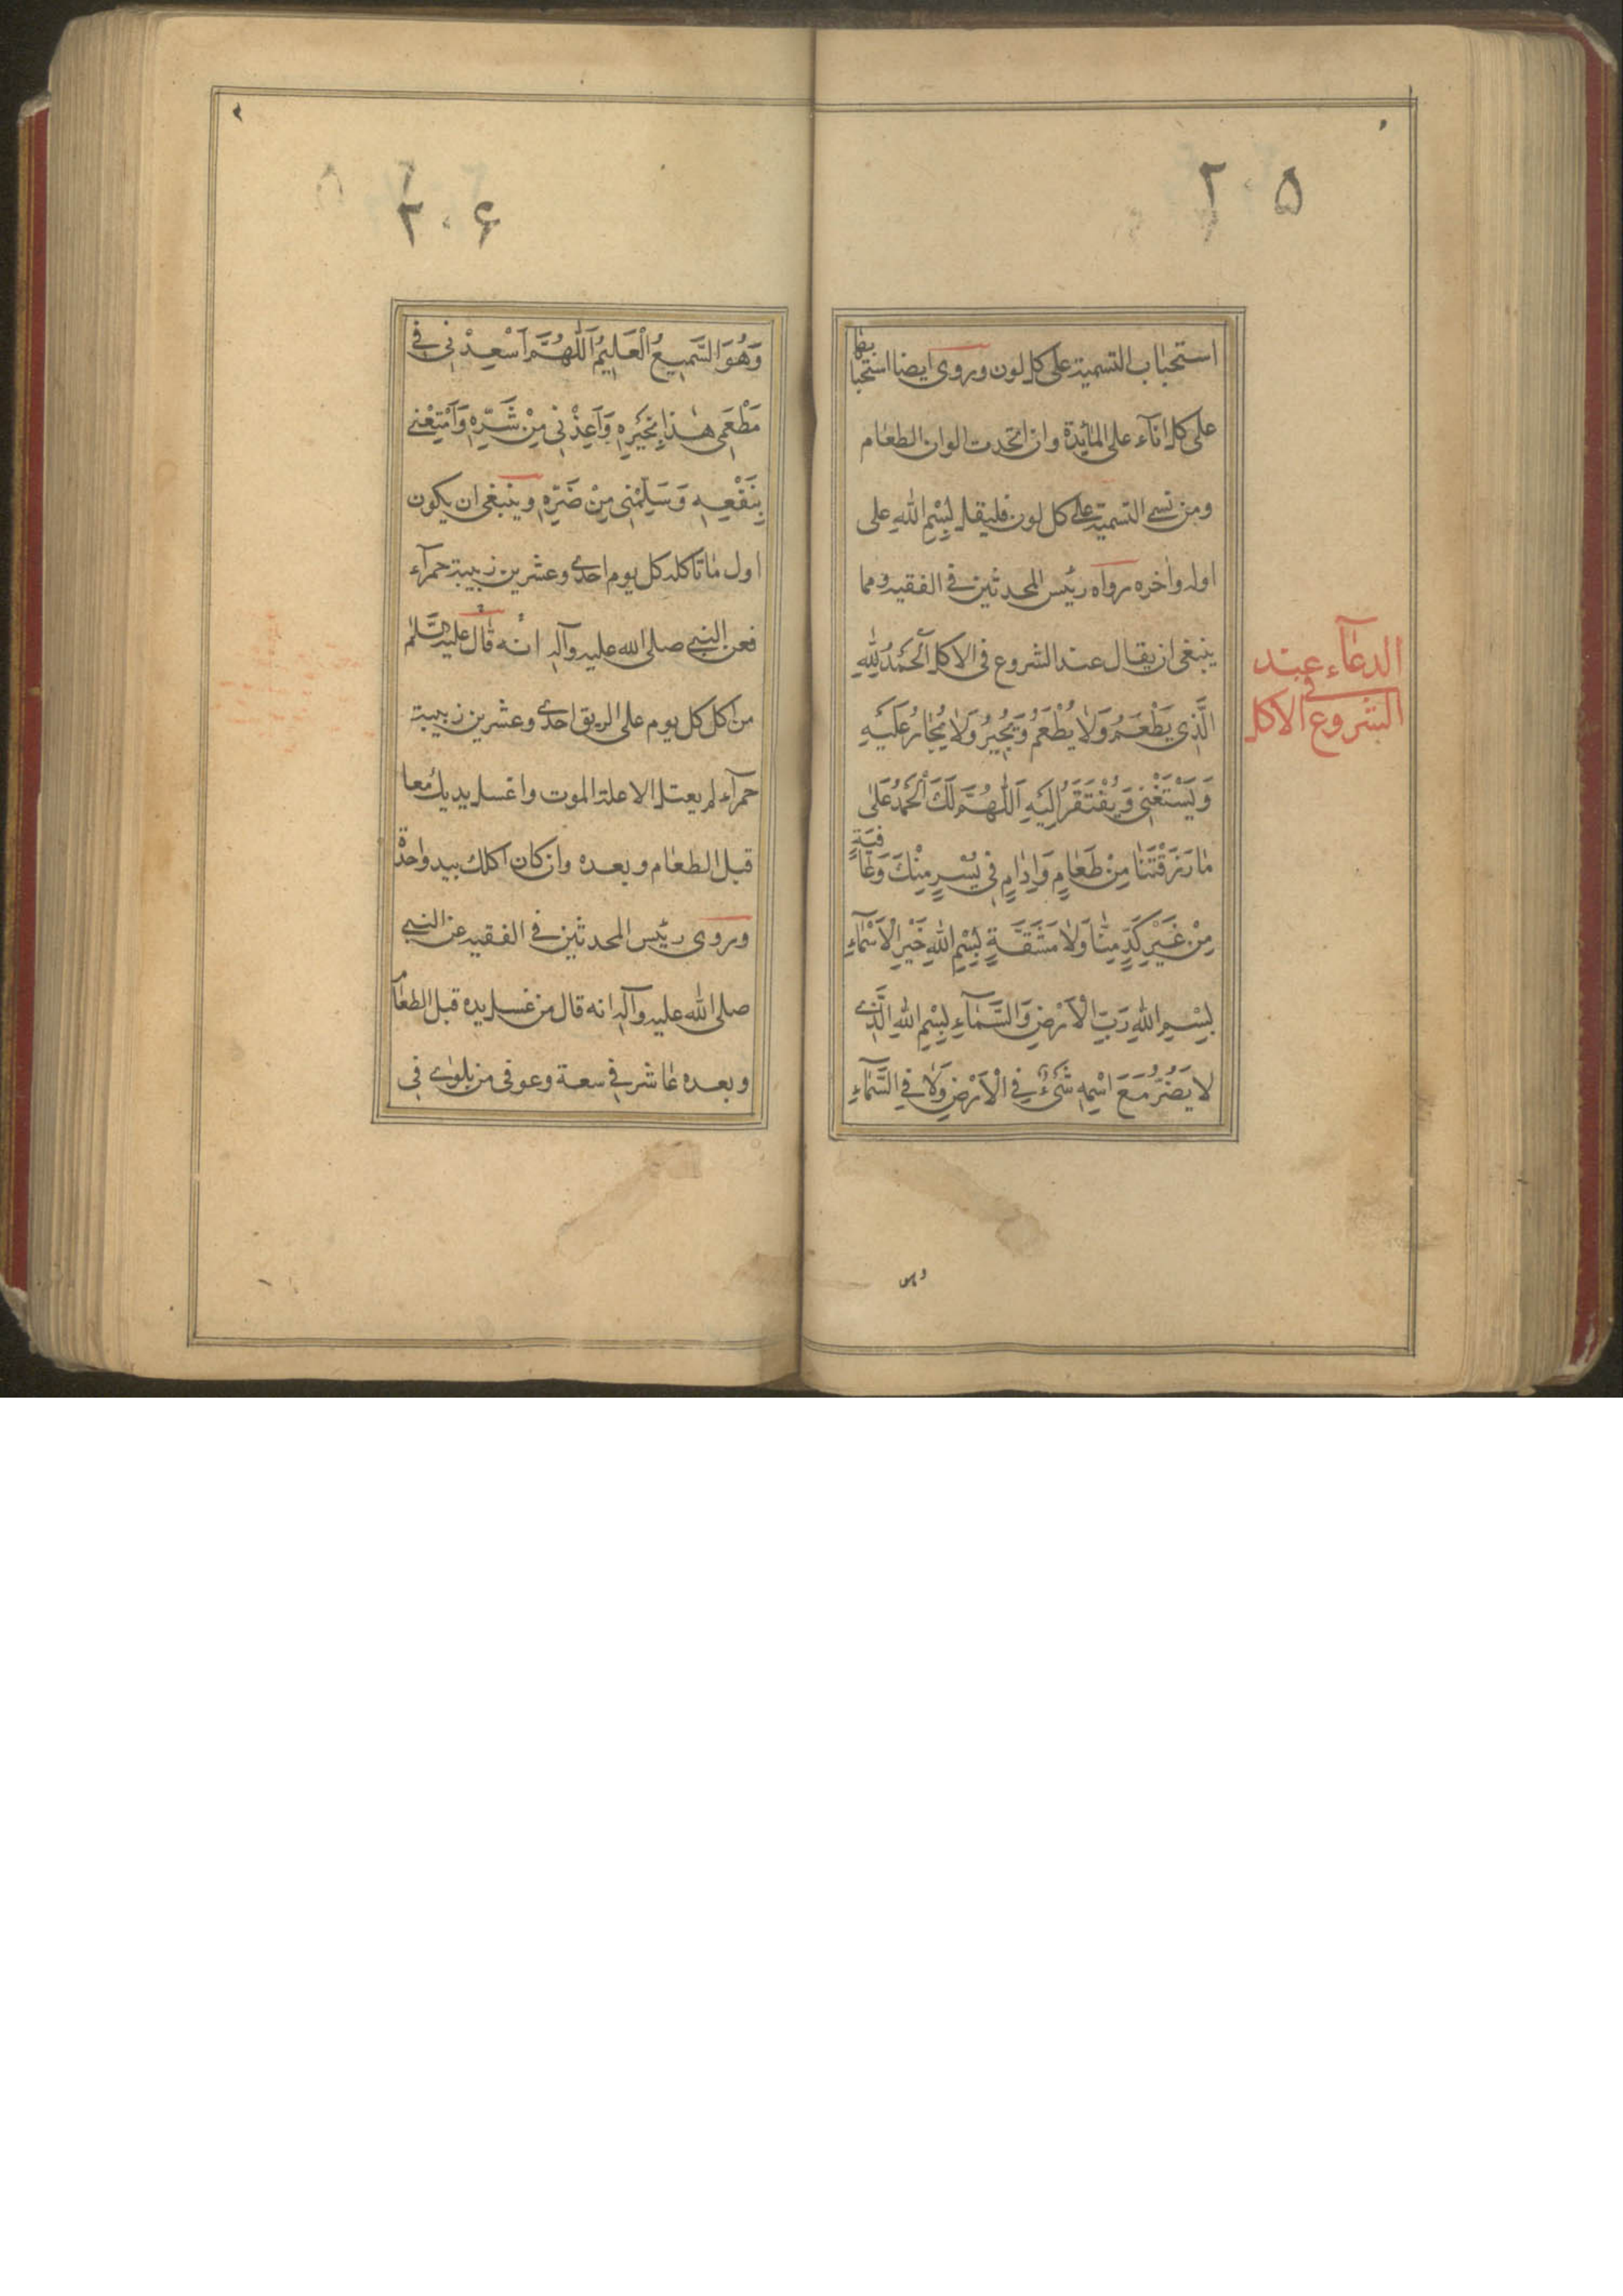 ۲۰۵
استحباب التسمية على كل لون وروى ايضا استحبابها
على كل اناء على المائدة وان اتحدت الوان الطعام
ومن نسى التسمية على كل لون فليقل بِسْمِ اللهِ على
اوله واخره رواه رئيس المحدثين في الفقيه ومما
ينبغى ان يقال عند الشروع فى الاكل اَلْحَمْدُ لِلّٰهِ
الدعاء عند
الشروع في الاكل
الَّذِي يُطْعِمُ وَلَا يُطْعَمُ وَيُجِيرُ وَلَا يُجَارُ عَلَيْهِ
وَيَسْتَغْنِي وَيُفْتَقَرُ اِلَيْهِ اَللّٰهُمَّ لَكَ الْحَمْدُ عَلٰى
مَا رَزَقْتَنَا مِنْ طَعَامٍ وَاِدَامٍ فِي يُسْرٍ مِنْكَ وَعَافِيَةٍ
مِنْ غَيْرِ كَدٍّ مِنَّا وَلَا مَشَقَّةٍ بِسْمِ اللهِ خَيْرِ الْاَسْمَاءِ
بِسْمِ اللهِ رَبِّ الْاَرْضِ وَالسَّمَاءِ بِسْمِ اللهِ الَّذِى
لَا يَضُرُّ مَعَ اسْمِهِ شَيْءٌ فِي الْاَرْضِ وَلَا فِي السَّمَاءِ
وهو
۲۰۶
وَهُوَ السَّمِيعُ الْعَلِيمُ اَللّٰهُمَّ اَسْعِدْنِي فِي
مَطْعَمِي هٰذَا بِخَيْرِهِ وَاَعِذْنِي مِنْ شَرِّهِ وَاَمْتِعْنِي
بِنَفْعِهِ وَسَلِّمْنِي مِنْ ضَرِّهِ وينبغى ان يكون
اول ما تاكله كل يوم احدى وعشرين زبيبة حمراء
فعن النبى صلى الله عليه وآله انه قال عليه السلام
من اكل كل يوم على الريق احدى وعشرين زبيبة
حمراء لم يعتل الا علة الموت واغسل يديك معا
قبل الطعام وبعده وان كان اكلك بيد واحدة
وروى رئيس المحدثين في الفقيه عن النبى
صلى الله عليه وآله انه قال من غسل يده قبل الطعام
وبعده عاش فى سعة وعوفى من بلوى فى